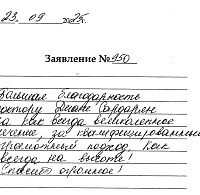 23. 09 2025.
Заявление № 950
Большая благодарность
доктору Диане
за как всегда великолепное
лечение, за квалифицированный
грамотный подход. Как
всегда на высоте!
Спасибо огромное!